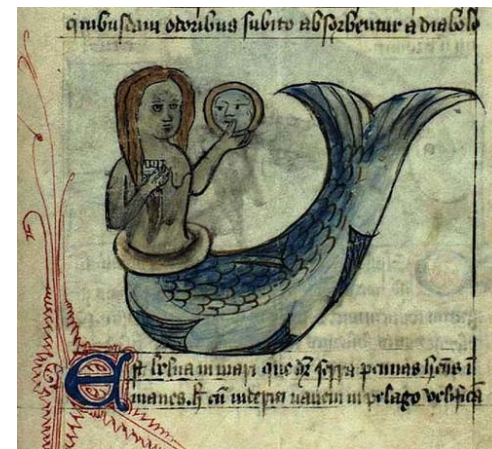 quibusdam odoribus subito absorbentur a diabolo
Est belua in mari que dr̄ serra pennas hn̄s ī
manes. h̄ cū uiderit nauem in pelago velificā